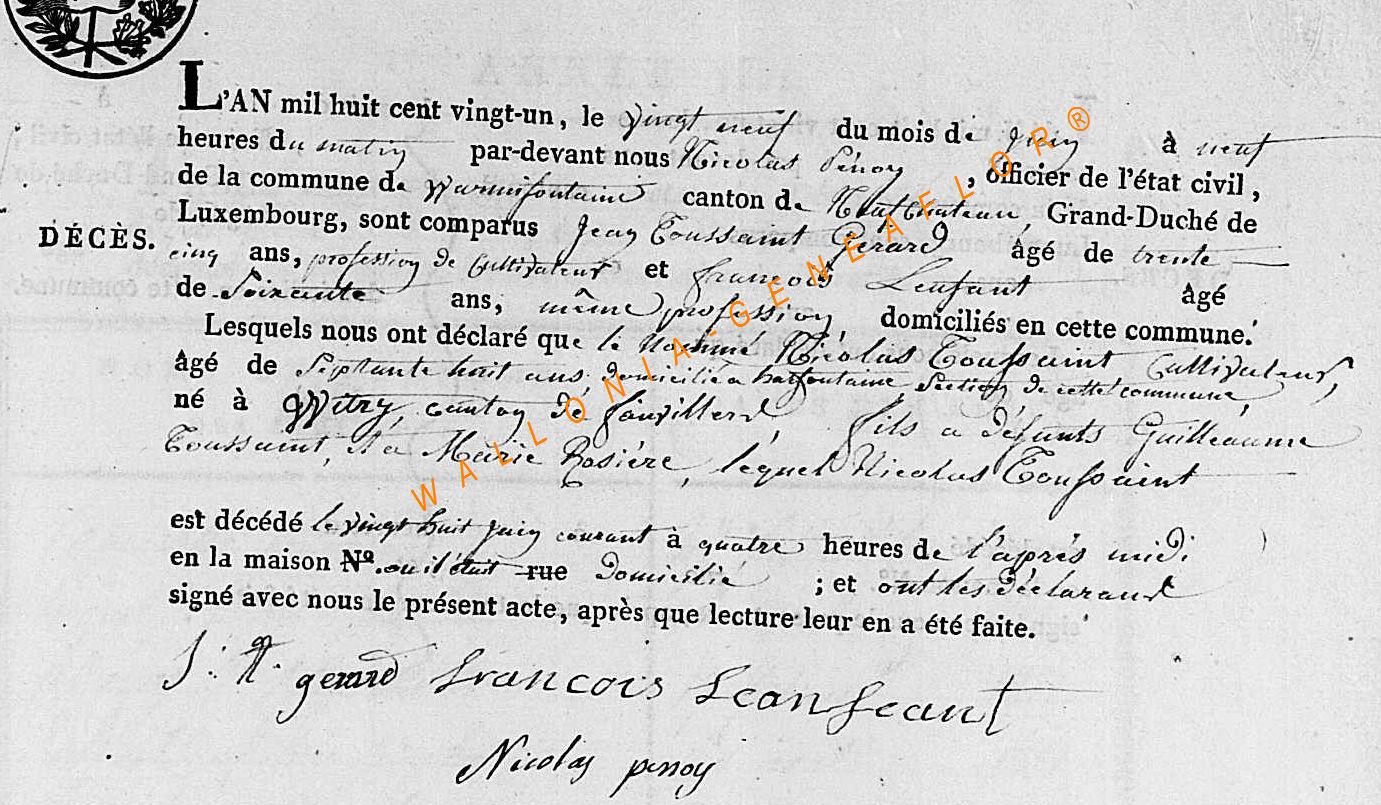 L'AN mil huit cent vingt-un, le vingt neuf du mois de juin à neuf
heures du matin par-devant nous Nicolas Pénoy, officier de l'état civil,
de la commune de Warmifontaine canton de Neufchateau, Grand-Duché de
Luxembourg, sont comparus Jean Toussaint Gérard âgé de trente
DÉCÈS.
cinq ans, profession de Cultivateur et françois Lenfant âgé
de Soixante ans, même profession, domiciliés en cette commune.
Lesquels nous ont déclaré que le Nommé Nicolas Toussaint Cultivateur,
âgé de Septante huit ans, domicilié a section de cette commune,
né à Witry, canton de fauvillers, fils a défunts Guilleaume
Toussaint, et a Marie Rosière, lequel Nicolas Toussaint
est décédé le vingt huit juin courant à quatre heures de l'après midi
en la maison Nº. ou il était rue Domicilié ; et ont les déclarans
signé avec nous le présent acte, après que lecture leur en a été faite.
J. T. gerard francois Leanfeant
Nicolas penoy
WALLONIA-GENEAFLOR®